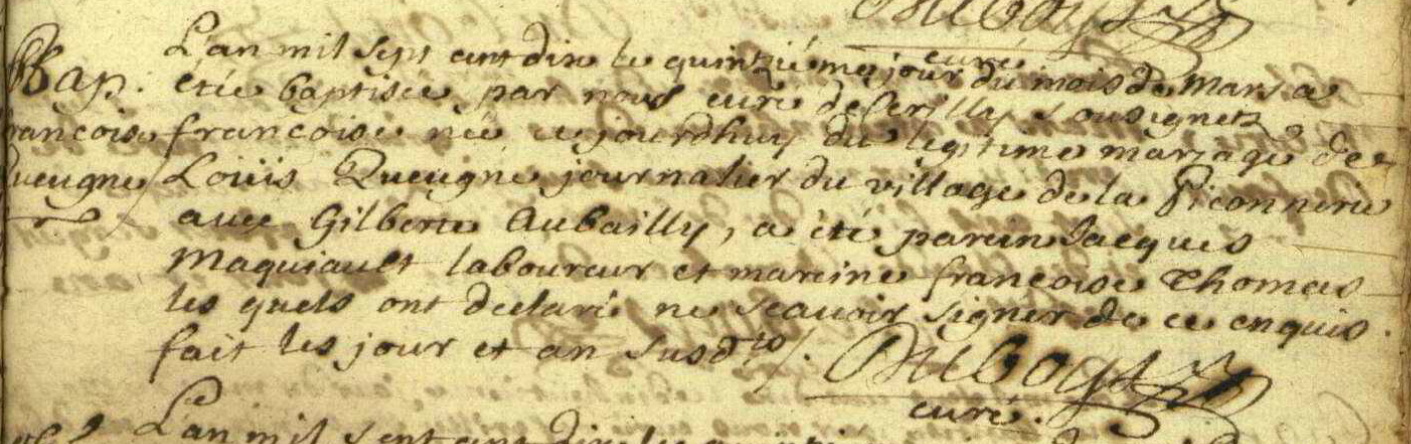 curé
Bap.
francoise
queugne
L'an mil sept cent dix le quinziéme jour du mois de Mars a
étée baptisée par nous curé de Cerilly sousignetz
francoise née ce jourdhuy du legitime mariage de
Loüis Queugne journalier du village de la Piconnerie
avec Gilberte Aubailly, a été parein Jacques
Maquiault laboureur et mareine francoise Thomas
les quels ont declaré ne scavoir signer de ce enquis.
fait les jour et an susdts /.
curé.
L'an mil sept cent dix le